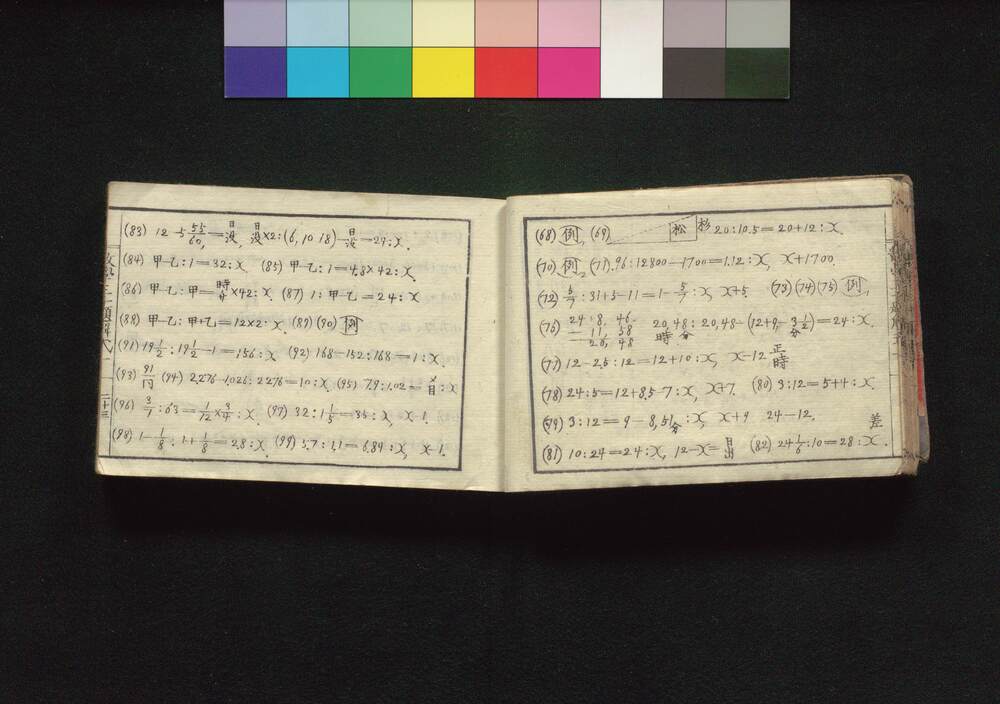 (68) 例, (69) 松 杉 20:10.5=20+12:x.
(70) 例, (71) .96:12800-1700=1.12:x, x+1700.
(72) 5/7:31+5-11=1-5/7:x, x+5. (73)(74)(75) 例,
(76) 24.8.46.-11.58 20.48 20,48:20,48-(12+9,-3 1/2)=24:x. 時 分 分
(77) 12-2.5:12=12+10:x, x-12 正時
(78) 24:5=12+8.5-7:x, x+7. (80) 3:12=5+4:x.
(79) 3:12=9-8,51分:x, x+9 24-12. 差
(81) 10:24=24:x, 12-x=日出 (82) 24 1/6:10=28:x.
(83) 12-5 55/60,=日没, 日没×2:(6,10 18)-日没=29:x.
(84) 甲-乙:1=32:x. (85) 甲-乙:1=4.8×42:x.
(86) 甲-乙:甲=時分×42:x. (87) 1:甲-乙=24:x
(88) 甲-乙:甲+乙=12×2:x. (89)(90) 例
(91) 19 1/2:19 1/2-1=156:x. (92) 168-152:168=1:x.
(93) 91/円 (94) 2.276-1.026:2.276=10:x. (95) 7.9:1.02=:x
(96) 3/1:63=1/12×3/4:x. (97) 32:1 1/5=35:x, x-1.
(98) 1-1/8:1+1/8=28:x. (99) 5.7:1.1=6.84:x, x-1.
二十三